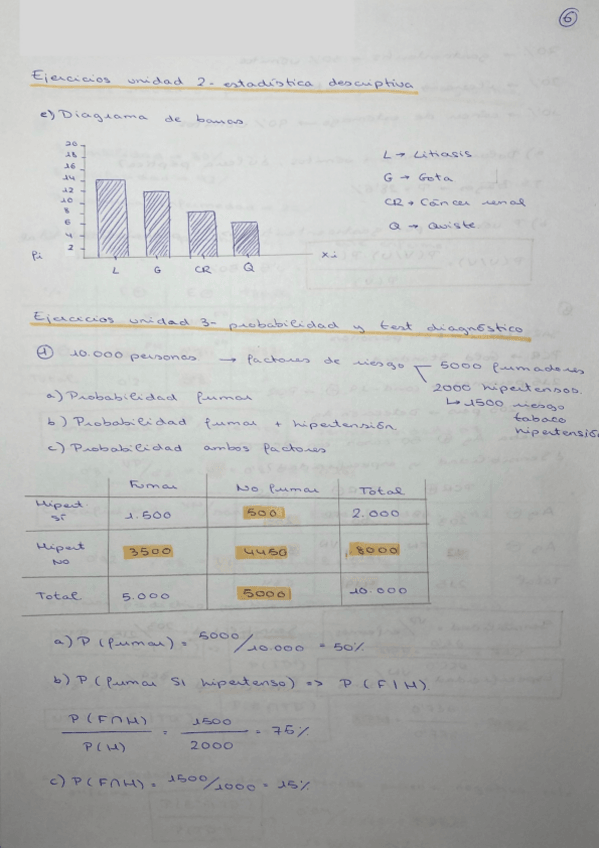 6
Ejercicios unidad 2- estadística descriptiva
e) Diagrama de barras
20
18
16
14
12
10
8
6
4
2
Pi
L
G
CR
Q
xi
L → Litiasis
G → Gota
CR → Cáncer renal
Q → Quiste
Ejercicios unidad 3- probabilidad y test diagnóstico
① 10.000 personas → factores de riesgo
5000 fumadores
2000 hipertensos.
↳ 1500 riesgo
tabaco
hipertensión
a) Probabilidad fumar
b) Probabilidad fumar + hipertensión
c) Probabilidad ambos factores
Fumar No fumar Total
Hipert. sí 1.500 500 2.000
Hipert NO 3500 4450 8000
Total 5.000 5000 10.000
a) P (fumar) = 5000/10.000 = 50%
b) P (fumar SI hipertenso) => P (F|H).
P (F∩H) / P (H) = 1500 / 2000 = 75%
c) P (F∩H) = 1500/1000 = 15%